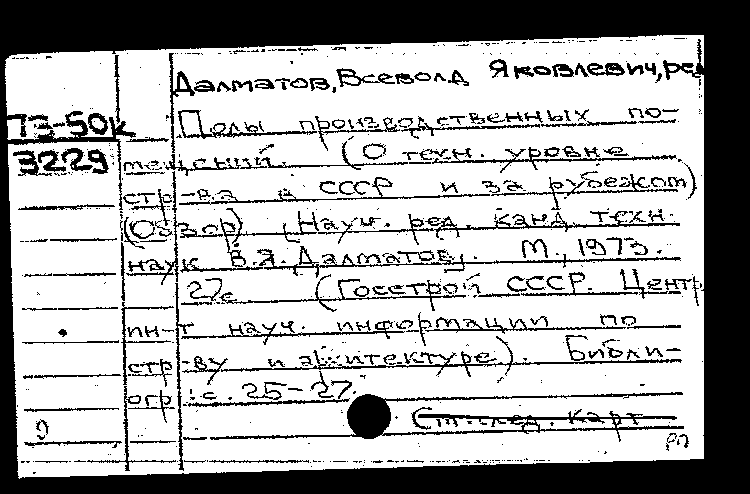 Далматов, Всеволд Яковлевич, ред
73-50к Полы производственных по-
3229 мещений. (О техн. уровне
стр-ва в СССР и за рубежом)
(Обзор) [Науч. ред. канд. техн.
наук В.Я. Далматов]. М., 1973.
27с (Госстрой СССР. Центр
ин-т науч. информации по
стр-ву и архитектуре). Библи-
огр.: с. 25-27.
См. след. карт